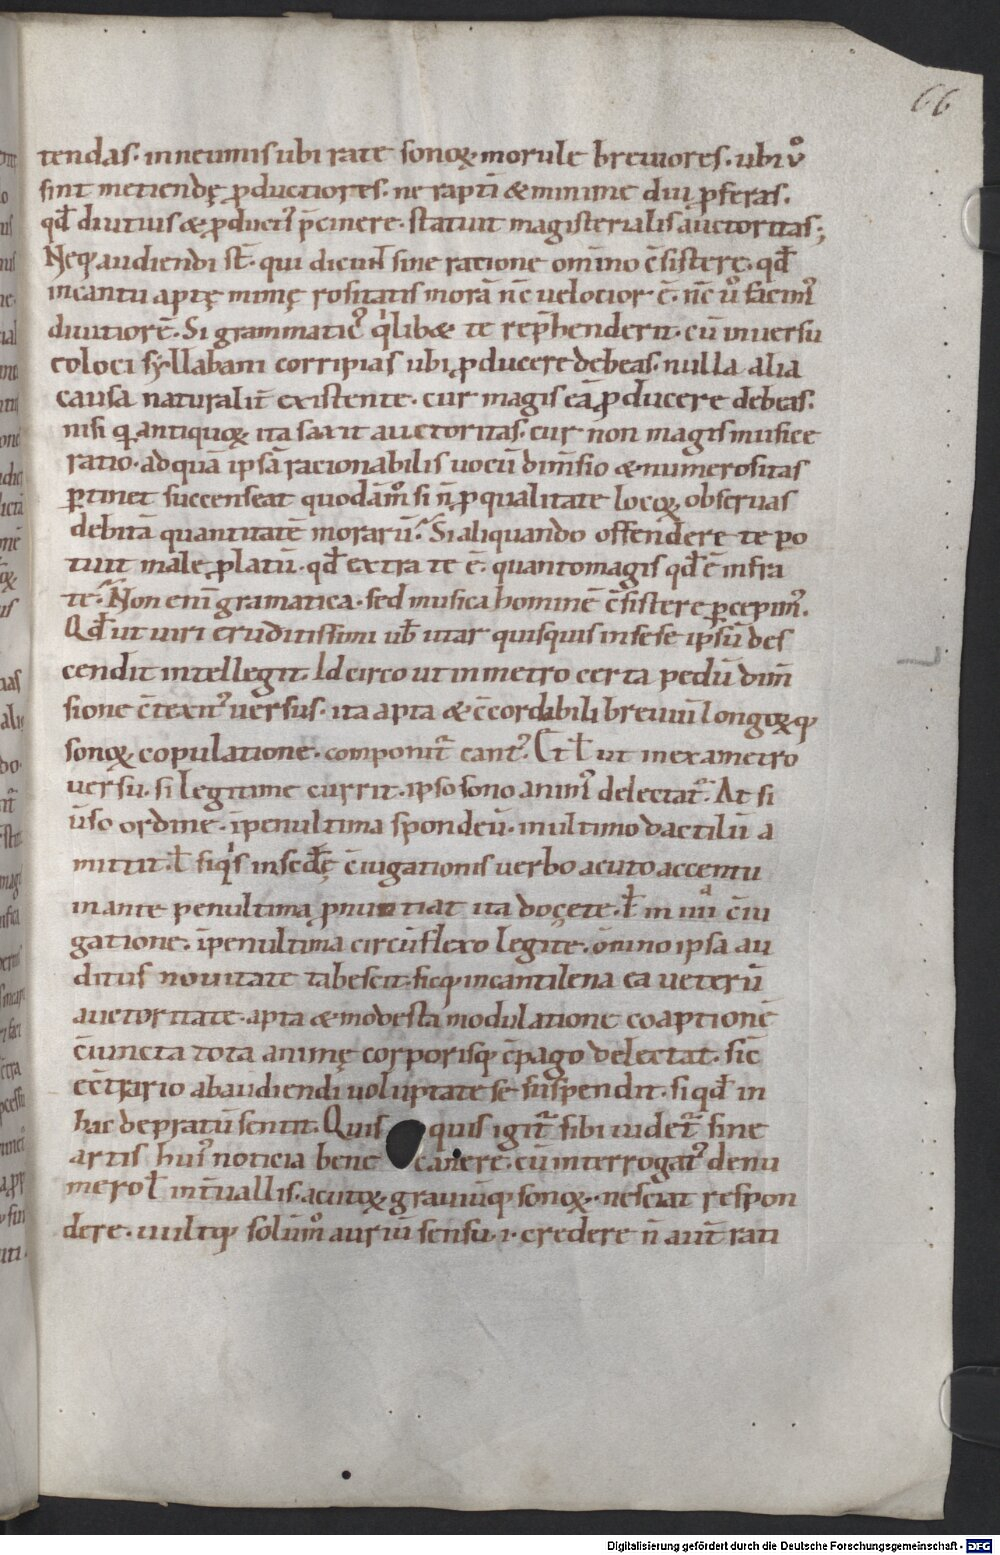 66
tendas· inneumisubi rate sonoꝝ morule breuiores· ubi ů
sint metiendę ꝓductiores· ne rapti &minime diu ꝓferas·
qđ diutius & ꝓduci᷒ p̄cinere· statuit magisterialis auctoritas;
Neq; audiendi st̄· qui dicunt sine racione om̄ino c̄sistere· qđ
incantu aptę numerositatis morā nc̄ uelocior ē· nc̄ ů facim᷒
diutiorē· Si grammatic᷒ qͥlib& te rep̄henderit· cū inuersu
eoloci syllabam corripias ubi ꝓducere debeas· nulla alia
causa naturalit̄ existente· cur magis eā ꝓducere debeas·
nisi q antiquoꝝ ita sanxit auctoritas· cur non magis musice
ratio· adquā ipsā racionabilis uocū dim̄sio & numerositas
ꝑtinet succenseat quodāmͦ si n̄ ꝓ qualitate locoꝝ obseruas
debitā quantitatē morarū· Si aliquando offendere te po
tuit male ꝓlatū· qđ extra te ē· quantomagis qđ ē infra
te· Non enī gramatica· sed musica hominē c̄sistere ꝑcepim᷒·
Qđ ut uiri eruditissimi ub̄ utar quisquis insese ipsū des
cendit intellegit· Idcirco ut inmetro certa pedū dim̄
sione c̄texit᷒ uersus· ita apta & c̄cordabili breuiū longoꝝq;
sonoꝝ copulatione· componit᷒ cant᷒· Et ł ut inexametro
uersu· si legitime currit· ipso sono anim᷒ delectat᷒· At si
ūso ordine· īpenultima spondeū· inultimo dactilū a
mittit· ł siqͥs insc̄dę c̄iugationis uerbo acuto accentu
inante penultima ꝓnuntiat ita docete· ł in iiiiͣ c̄iu
gatione· īpenultima circūflexo legite· om̄ino ipsa au
ditus nouitate tabescit· sicq; incantilena ea ueterū
auctoritate· apta & modesta modulatione coaptione
c̄iuncta tota animę corporisq; c̄pago delectat· sic̄
ec̄trario abaudiendi uoluptate se suspendit· si qđ in
hac depratū sentit· Quis quis igit᷒ sibi uidet᷒ sine
artis hui᷒ noticia bene canere· cū interrogat᷒ denu
mero ł int̄uallis· acutoꝝ· grauiūq; sonoꝝ· nesciat respon
dere· uultq; solūmͦ auriū sensu· ·i· credere n̄ aut̄ rati
Digitalisierung gefördert durch die Deutsche Forschungsgemeinschaft - DFG